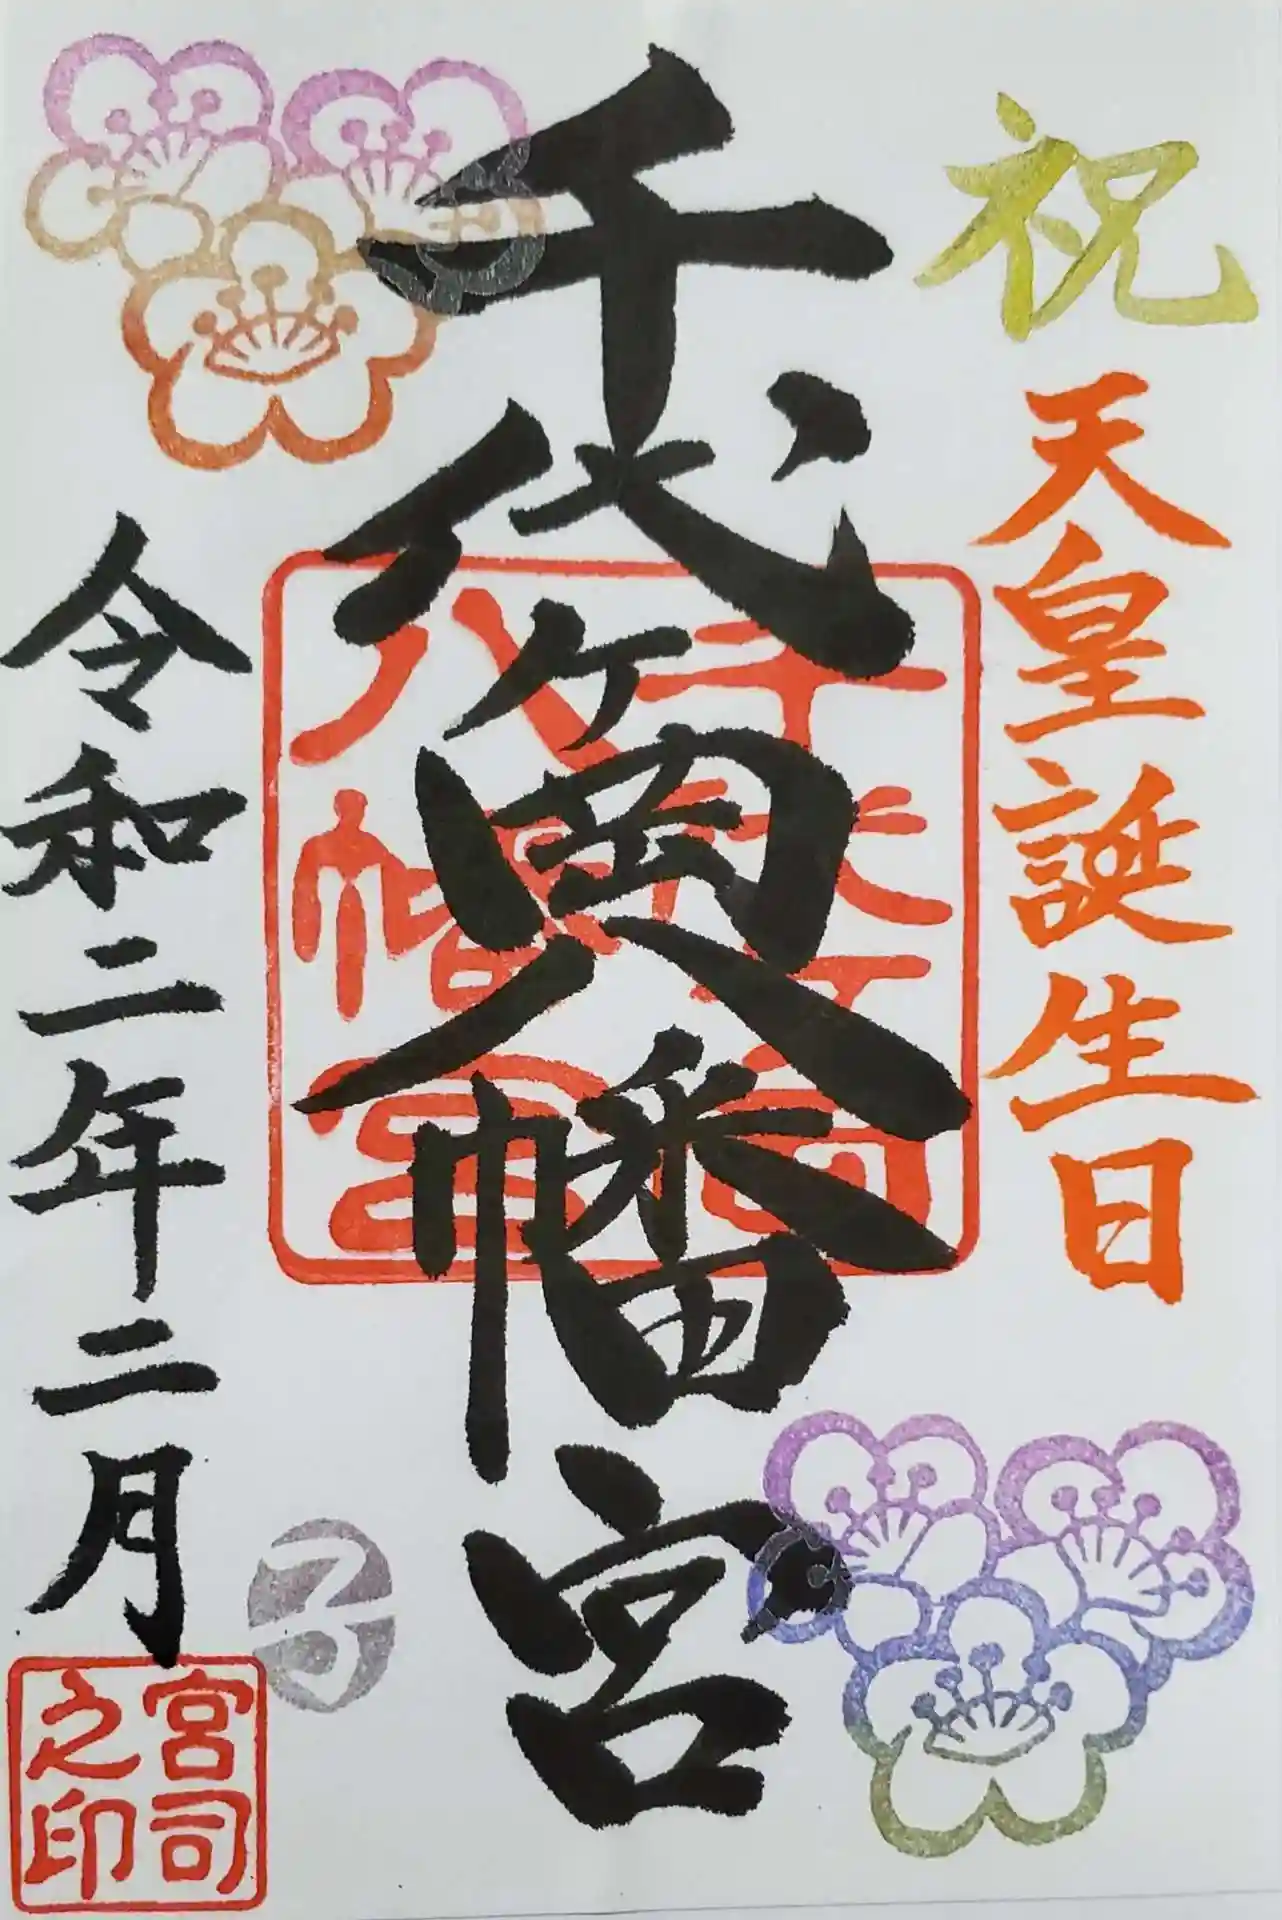 祝
天皇誕生日
千代ヶ岡八幡宮
千代ヶ岡
八幡宮
令和二年二月
子
宮司
之印